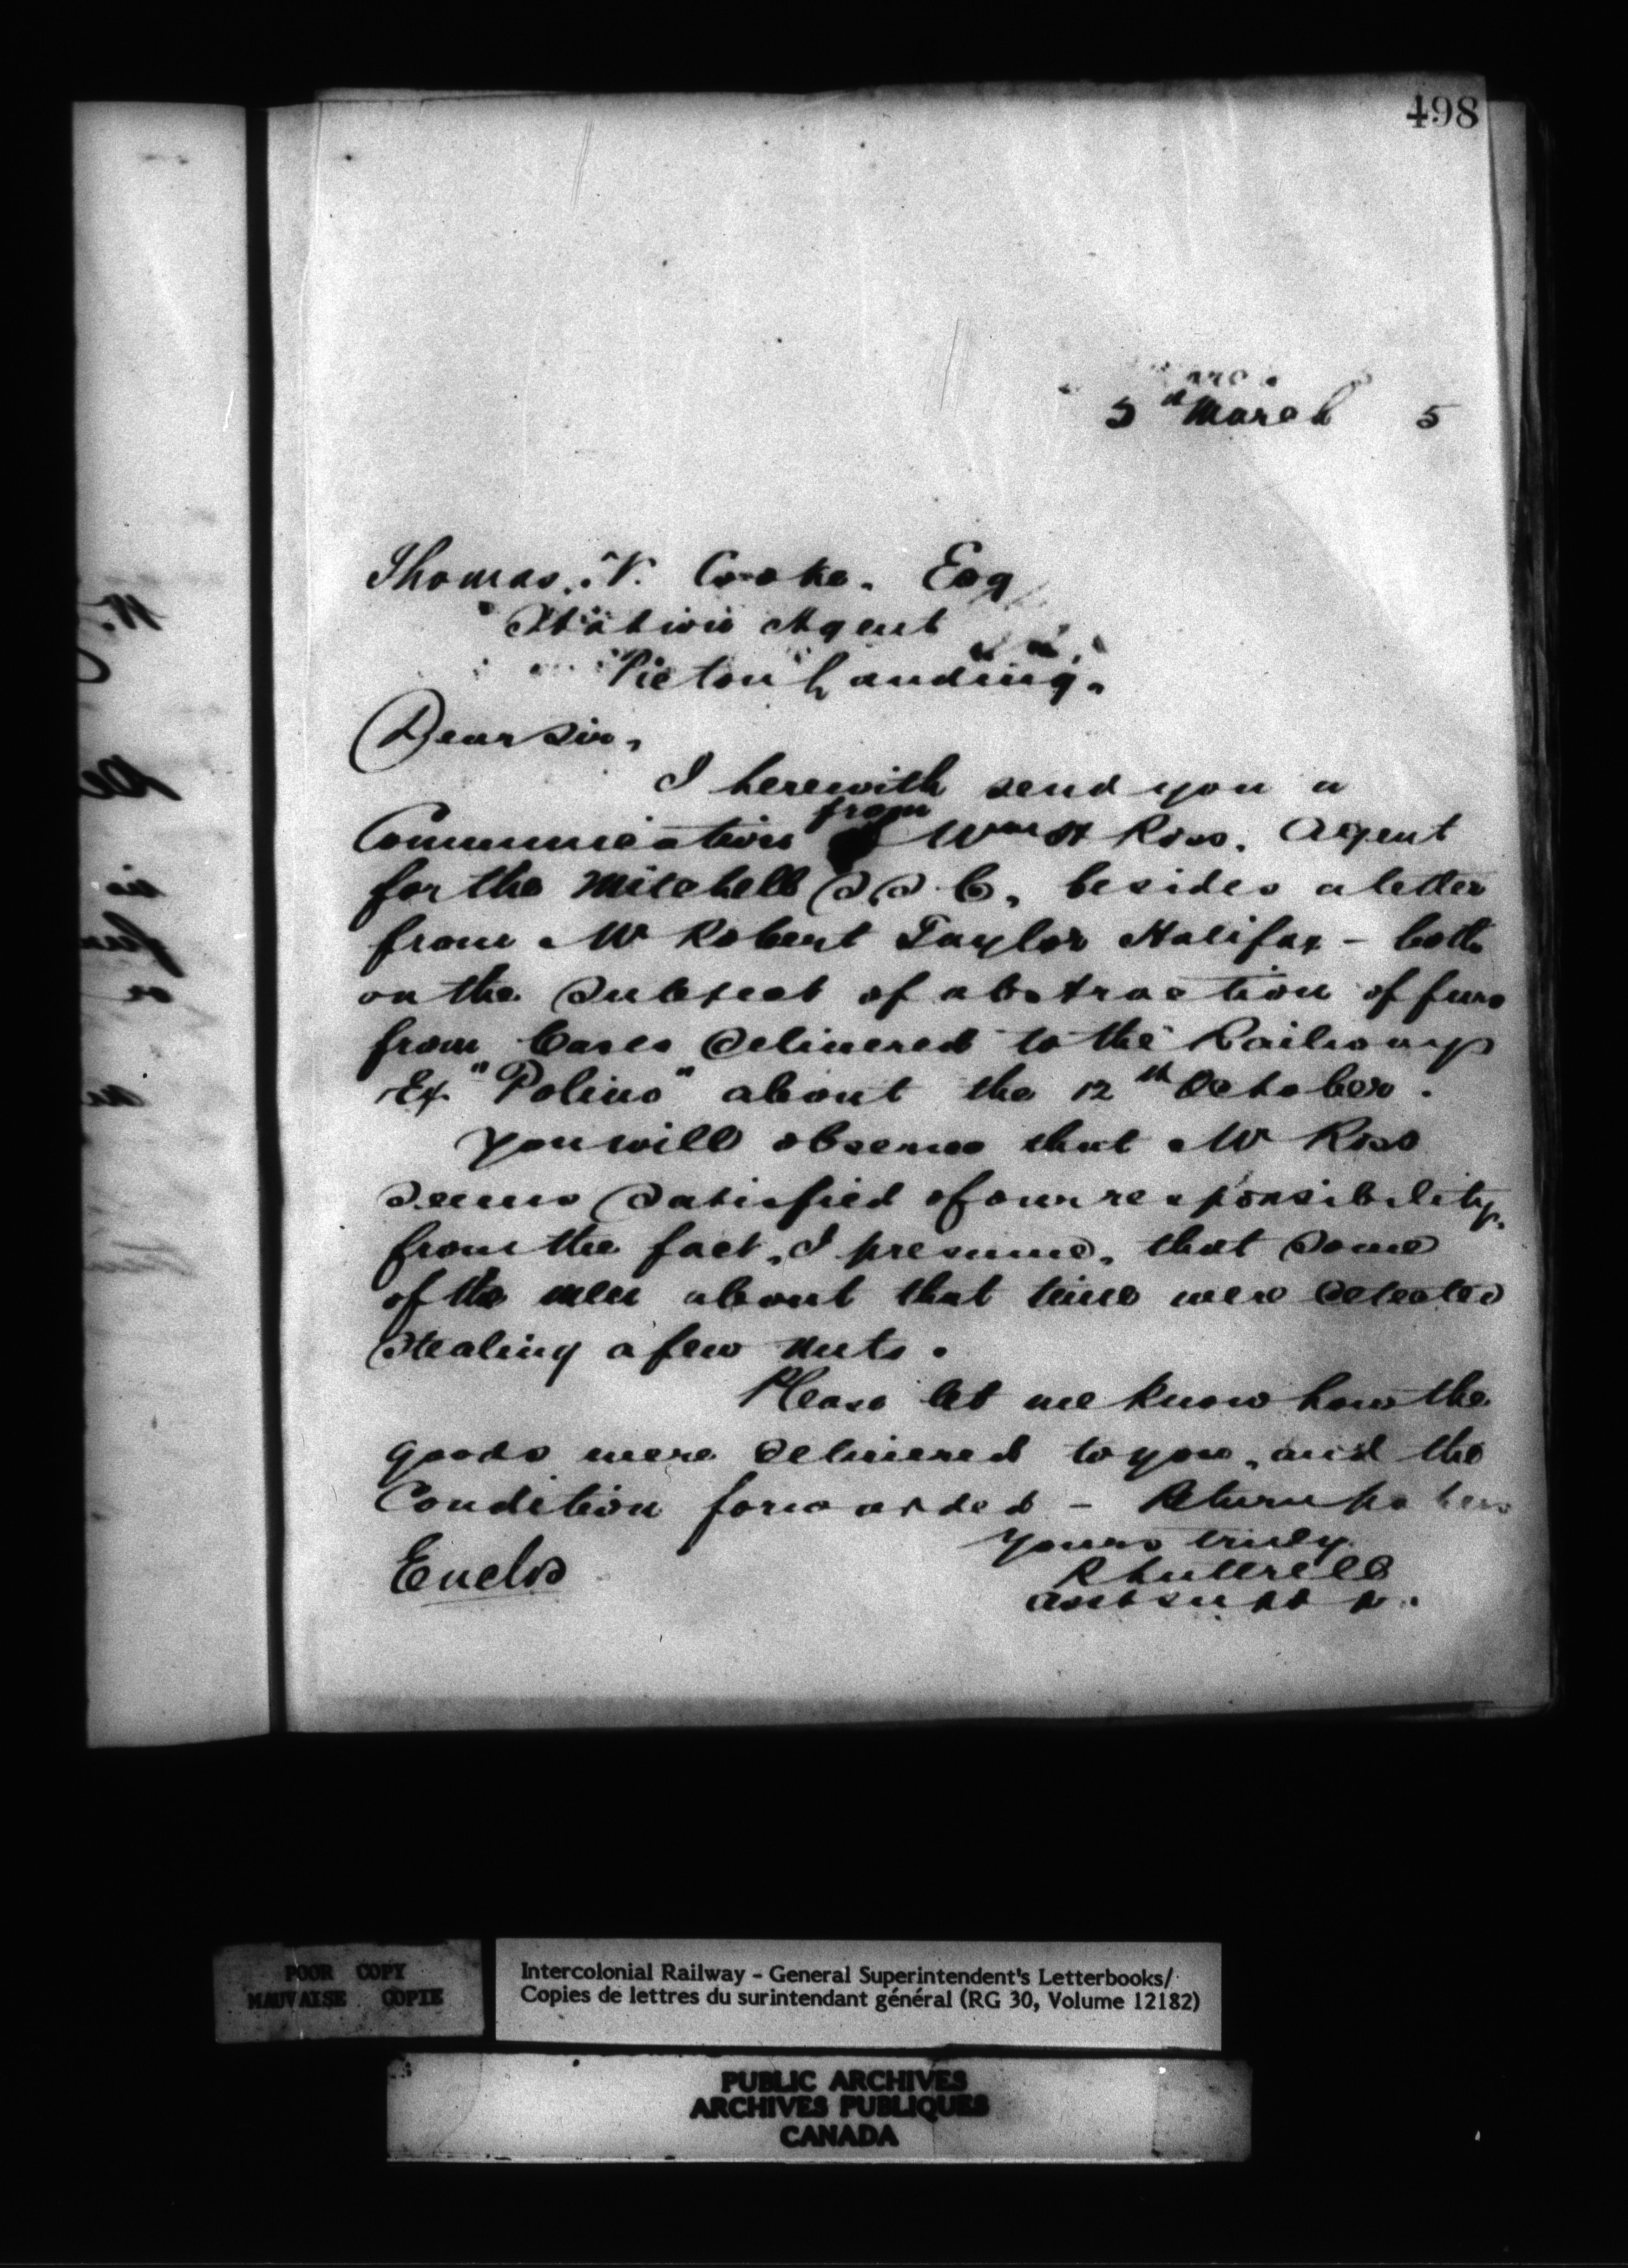 498
5th March 5
Thomas. V. Cooke. Esq
Station Agent
Pictou Landing.
Dear Sir,
I herewith send you a
Communication from Wm H Ross. Agent
for the Mitchell S S C, besides a letter
from Mr Robert Taylor Halifax - both
on the Subject of abstraction of furs
from Cases delivered to the Railway
Ex "Polino" about the 12th October.
You will observe that Mr Ross
seems Satisfied of our responsibility,
from the fact, I presume, that some
of the men about that time were detected
Stealing a few nuts.
Please let me know how the
goods were delivered to you, and the
Condition forwarded - Return papers
Yours truly
R Luttrell
Asst Supt
Enclos
POOR COPY
MAUVAISE COPIE
Intercolonial Railway - General Superintendent's Letterbooks/
Copies de lettres du surintendant général (RG 30, Volume 12182)
PUBLIC ARCHIVES
ARCHIVES PUBLIQUES
CANADA